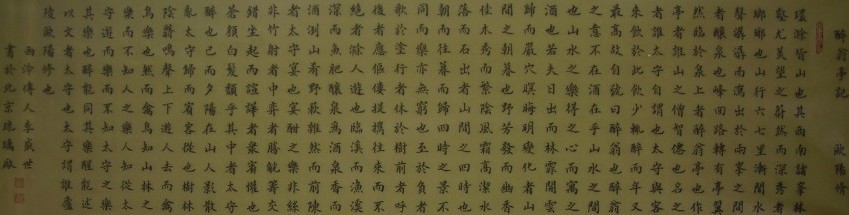 醉翁亭記 歐陽修
環滁皆山也其西南諸峯林
壑尤美望之蔚然而深秀者
瑯琊也山行六七里漸聞水
聲潺潺而瀉出於兩峯之間
者釀泉也峰回路轉有亭翼
然臨於泉上者醉翁亭也作
亭者誰山之僧智僊也名之
者誰太守自謂也太守與客
來飲於此飲少輒醉而年又
最高故自號曰醉翁也醉翁
之意不在酒在乎山水之間
也山水之樂得之心而寓之
酒也若夫日出而林霏開雲
歸而巖穴暝晦明變化者山
間之朝暮也野芳發而幽香
佳木秀而繁陰風霜高潔水
落而石出者山間之四時也
朝而往暮而歸四時之景不
同而樂亦無窮也至於負者
歌於塗行者休於樹前者呼
後者應傴僂提攜往來而不
絕者滁人遊也臨溪而漁溪
深而魚肥釀泉爲酒泉香而
酒洌山肴野蔌雜然而前陳
者太守宴也宴酣之樂非絲
非竹射者中弈者勝觥籌交
錯坐起而諠譁者衆賓懽也
蒼顏白髮頹乎其中者太守
醉也已而夕陽在山人影散
亂太守歸而賓客從也樹林
陰翳鳴聲上下遊人去而禽
鳥樂也然而禽鳥知山林之
樂而不知人之樂人知從太
守遊而樂而不知太守之樂
其樂也醉能同其樂醒能述
以文者太守也太守謂誰廬
陵歐陽修也
西泠傳人車盛世
書於北京琉璃厰